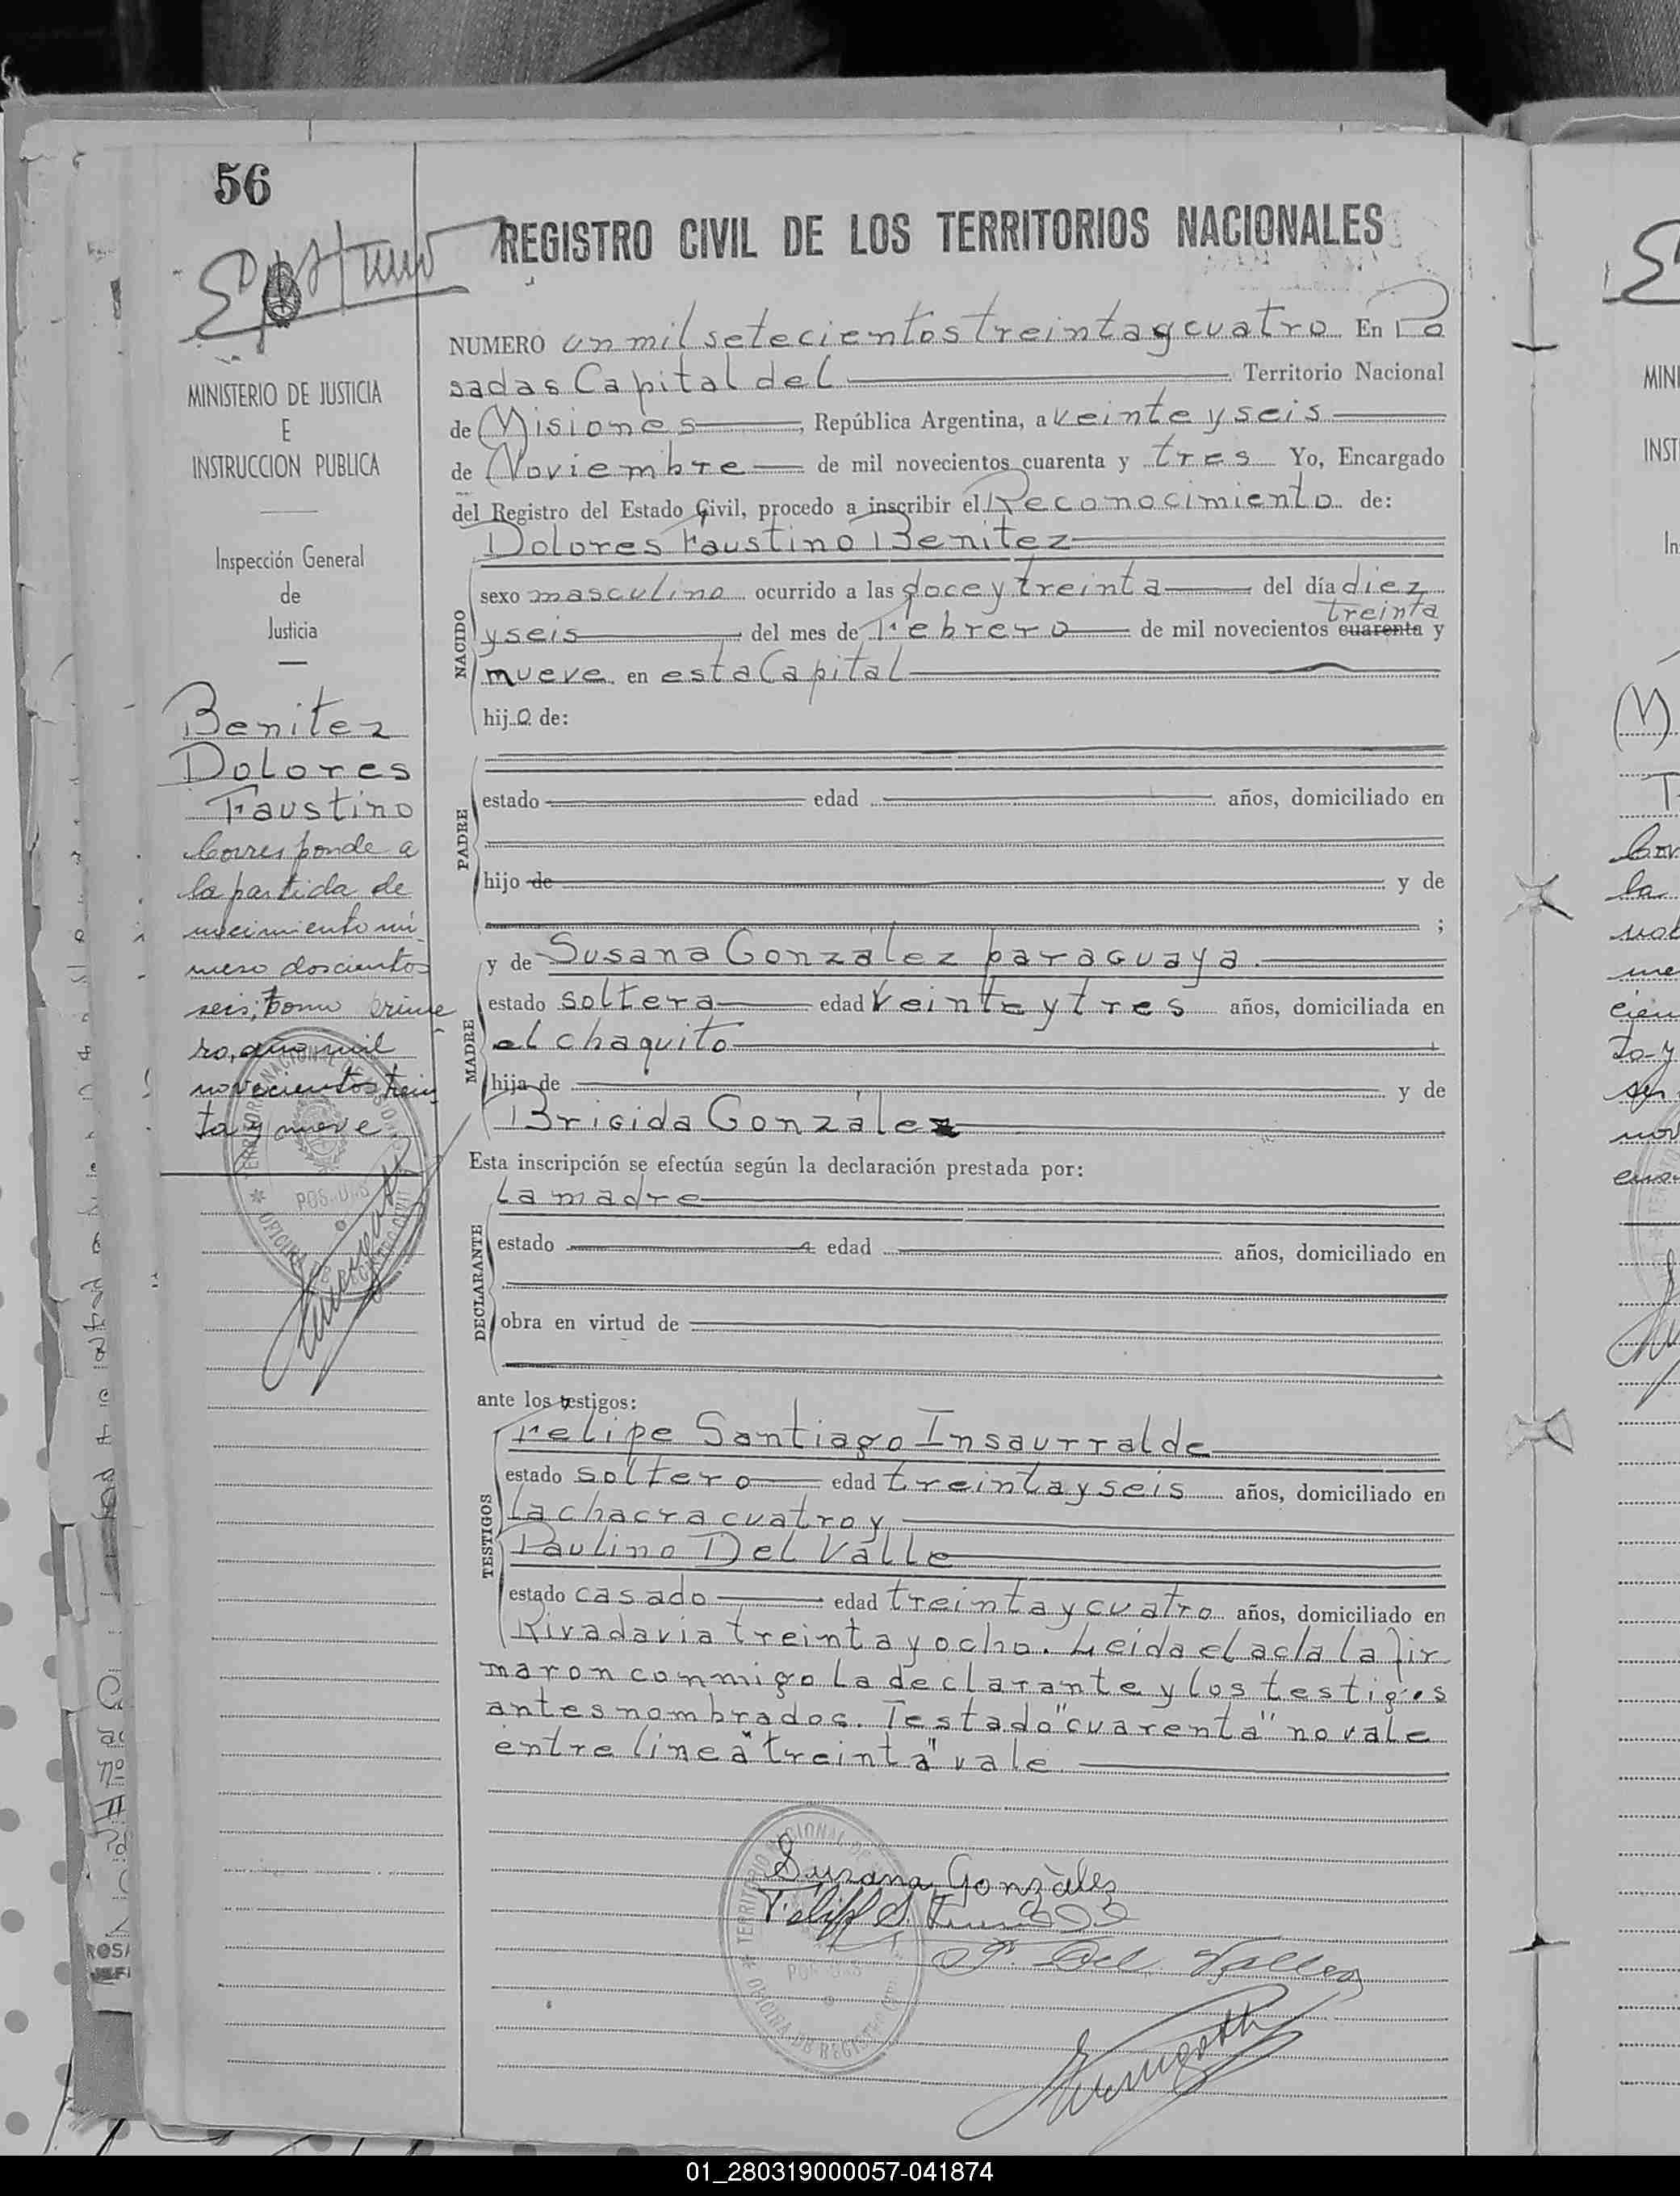 56
REGISTRO CIVIL DE LOS TERRITORIOS NACIONALES
MINISTERIO DE JUSTICIA
E
INSTRUCCION PUBLICA
Inspección General
de
Justicia
Benitez
Dolores
Faustino
Corresponde a
la partida de
nacimiento nú
mero doscientos
seis, tomo prime
ro, año mil
novecientos trein
ta y nueve
NUMERO un mil setecientos treinta y cuatro En Po
sadas Capital del Territorio Nacional
de Misiones, República Argentina, a veinte y seis
de Noviembre de mil novecientos cuarenta y tres Yo, Encargado
del Registro del Estado Civil, procedo a inscribir el Reconocimiento de:
Dolores Faustino Benitez
NACIDO
sexo masculino ocurrido a las doce y treinta del día diez
treinta
y seis del mes de Febrero de mil novecientos cuarenta y
nueve en esta Capital
hijo de:
PADRE
estado edad años, domiciliado en
hijo de y de
;
MADRE
y de Susana González paraguaya.
estado soltera edad veinte y tres años, domiciliada en
el chaquito
hija de y de
Brigida González
Esta inscripción se efectúa según la declaración prestada por:
La madre
DECLARANTE
estado edad años, domiciliado en
obra en virtud de
ante los testigos:
TESTIGOS
Felipe Santiago Insaurralde
estado soltero edad treinta y seis años, domiciliado en
La chacra cuatro y
Paulino Del Valle
estado casado edad treinta y cuatro años, domiciliado en
Rivadavia treinta y ocho. Leida el acta la fir
maron conmigo la declarante y los testigos
antes nombrados. Testado "cuarenta" no vale
entre linea "treinta" vale
Susana Gonzàlez
P. Del Valle
TERRITORIO NACIONAL DE
OFICINA DE REGISTRO
01_280319000057-041874